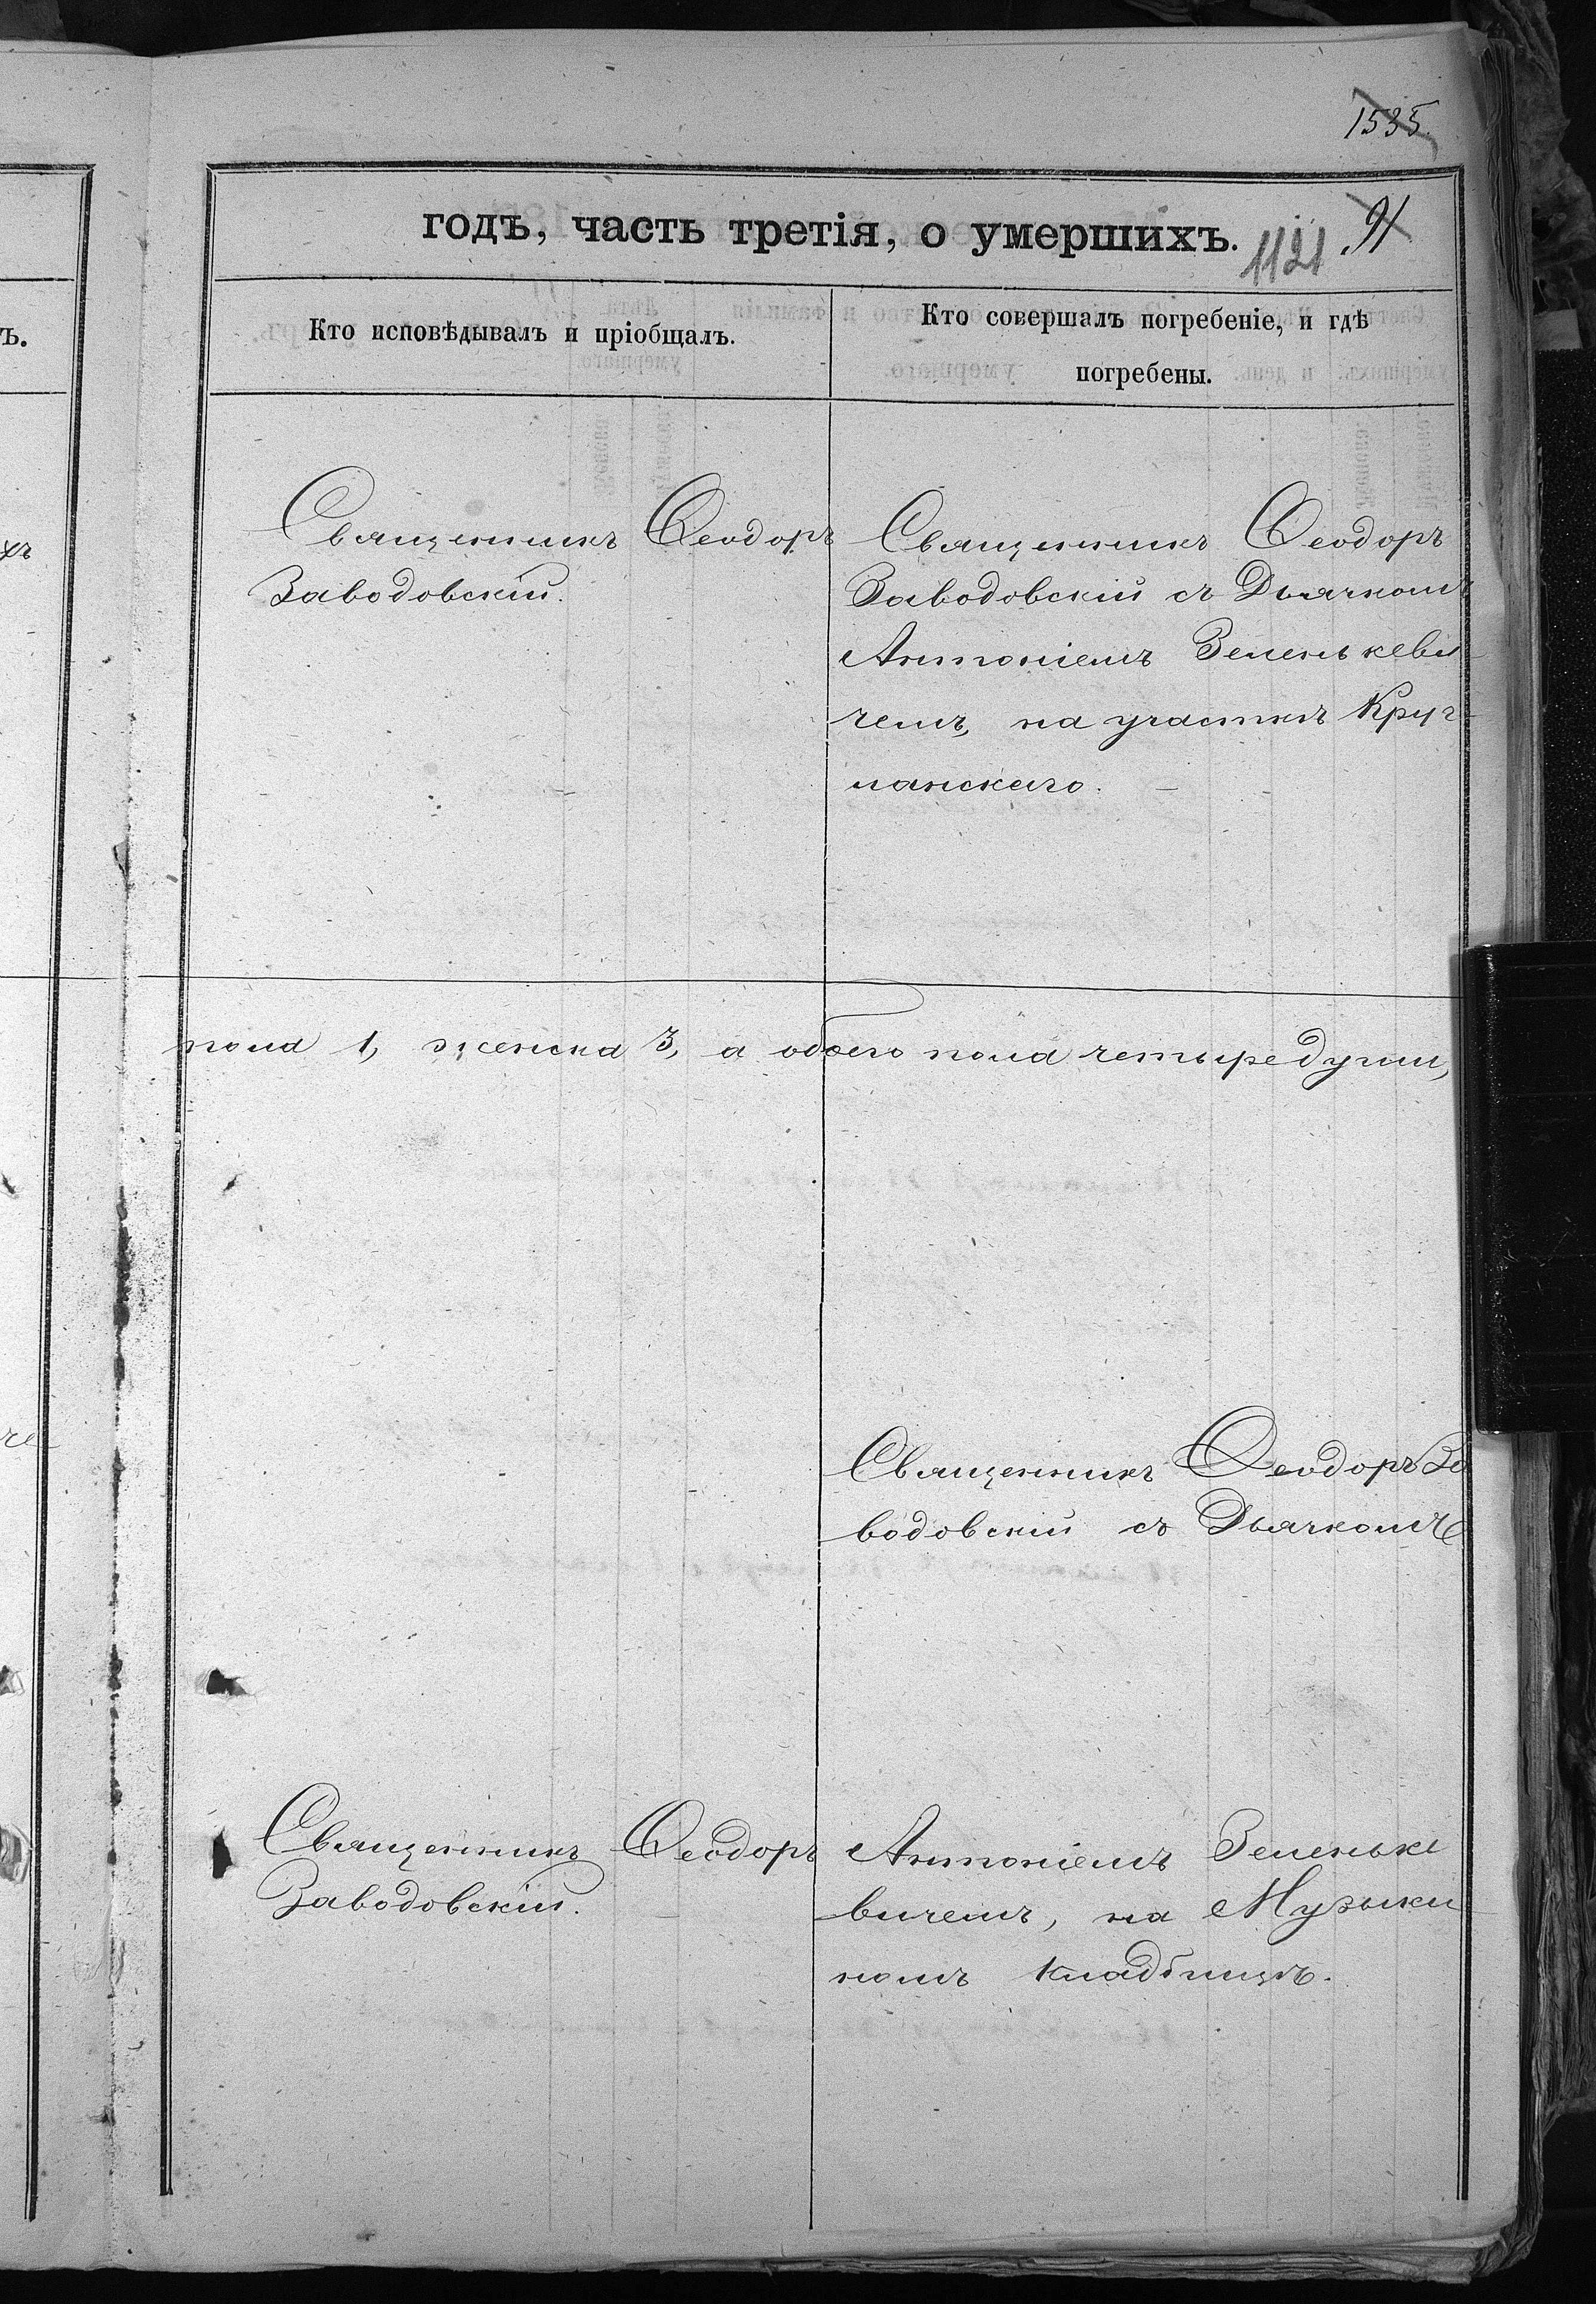 1535
годъ, часть третія, о умершихъ.
1121
91
ъ.
Кто исповѣдывалъ и пріобщалъ.
Кто совершалъ погребеніе, и гдѣ
погребены.
хъ
Священникъ Ѳеодоръ
Заводовскій.
Священникъ Ѳеодоръ
Заводовскій съ Дьячкомъ
Антоніемъ Зеленькеви-
чемъ, на участкѣ Круг-
ланскаго.
пола 1, женска 3, а обоего пола четыре души,
Священникъ Ѳеодоръ За
водовскій съ Дьячкомъ
Священникъ Ѳеодоръ
Заводовскій.
Антоніемъ Зеленьке
вичемъ, на Музыки
номъ кладбищѣ.